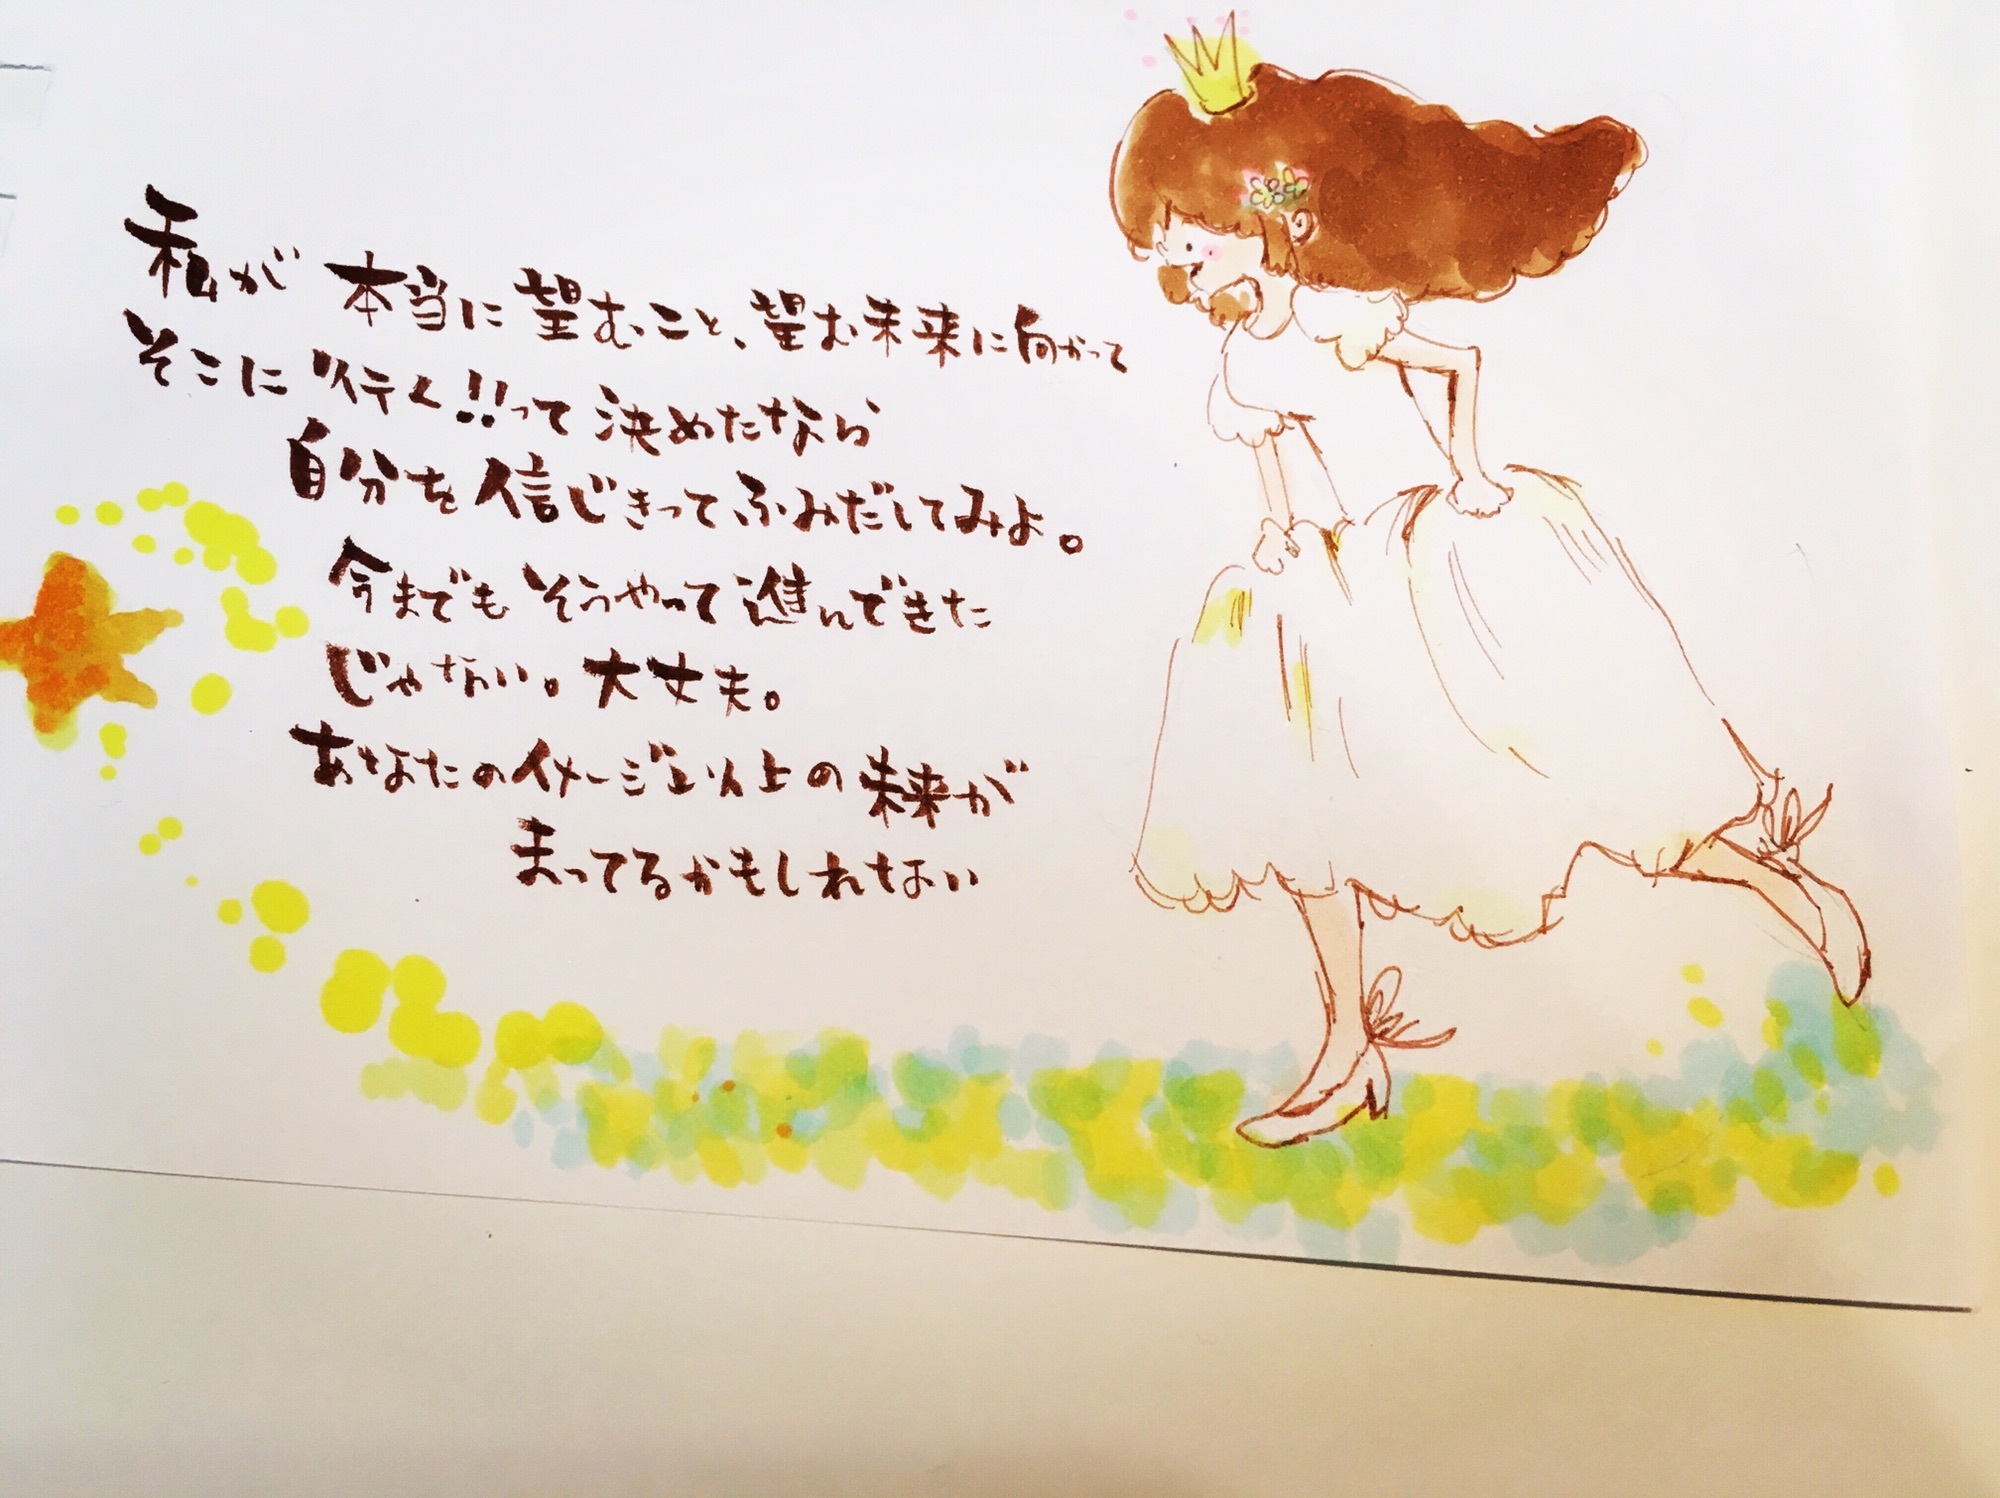 私が本当に望むこと、望む未来に向かって
そこに"行く!!って決めたなら
自分を信じきってふみだしてみよ。
今までもそうやって進んできた
じゃない。大丈夫。
あなたのイメージ以上の未来が
まってるかもしれない